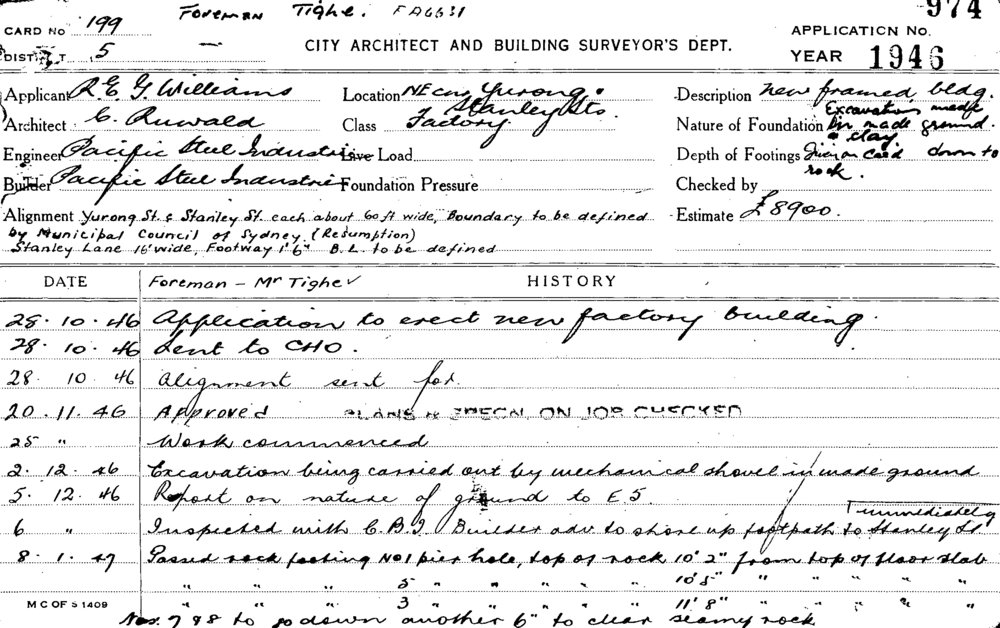 Foreman Tighe. FA6631
974
CARD No 199
APPLICATION No.
DISTRICT 5
CITY ARCHITECT AND BUILDING SURVEYOR'S DEPT.
YEAR 1946
Applicant R E G Williams
Location NE cnr Yurong & Stanley Sts.
Description New framed bldg.
Architect C. Ruwald
Class Factory.
Nature of Foundation Excavation made in made ground & clay
Engineer Pacific Steel Industries
Live Load
Depth of Footings Given on Card down to rock.
Builder Pacific Steel Industries
Foundation Pressure
Checked by
Alignment Yurong St. & Stanley St. each about 60 ft wide, Boundary to be defined
Estimate £8900.
by Municipal Council of Sydney (Resumption)
Stanley Lane 16' wide, Footway 1' 6" B.L. to be defined
DATE Foreman – Mr Tighe HISTORY
28. 10. 46 Application to erect new factory building.
28. 10. 46 Sent to CHO.
28. 10 46 Alignment sent for.
20. 11. 46 Approved PLANS & SPECN. ON JOB CHECKED
25 " Work commenced
2. 12. 46 Excavation being carried out by mechanical shovel in made ground
5. 12. 46 Report on nature of ground to E S.
6 " Inspected with C.B.I. Builder adv. to shore up footpath to Stanley St immediately
8. 1. 47 Passed rock footing No 1 pier hole, top of rock 10' 2" from top of floor slab
" " " 5 " " " " " 10' 5" " " " " "
" " " 3 " " " " " 11' 8" " " " " "
M C OF S 1409
Nos. 7 & 8 to go down another 6" to clear seamy rock